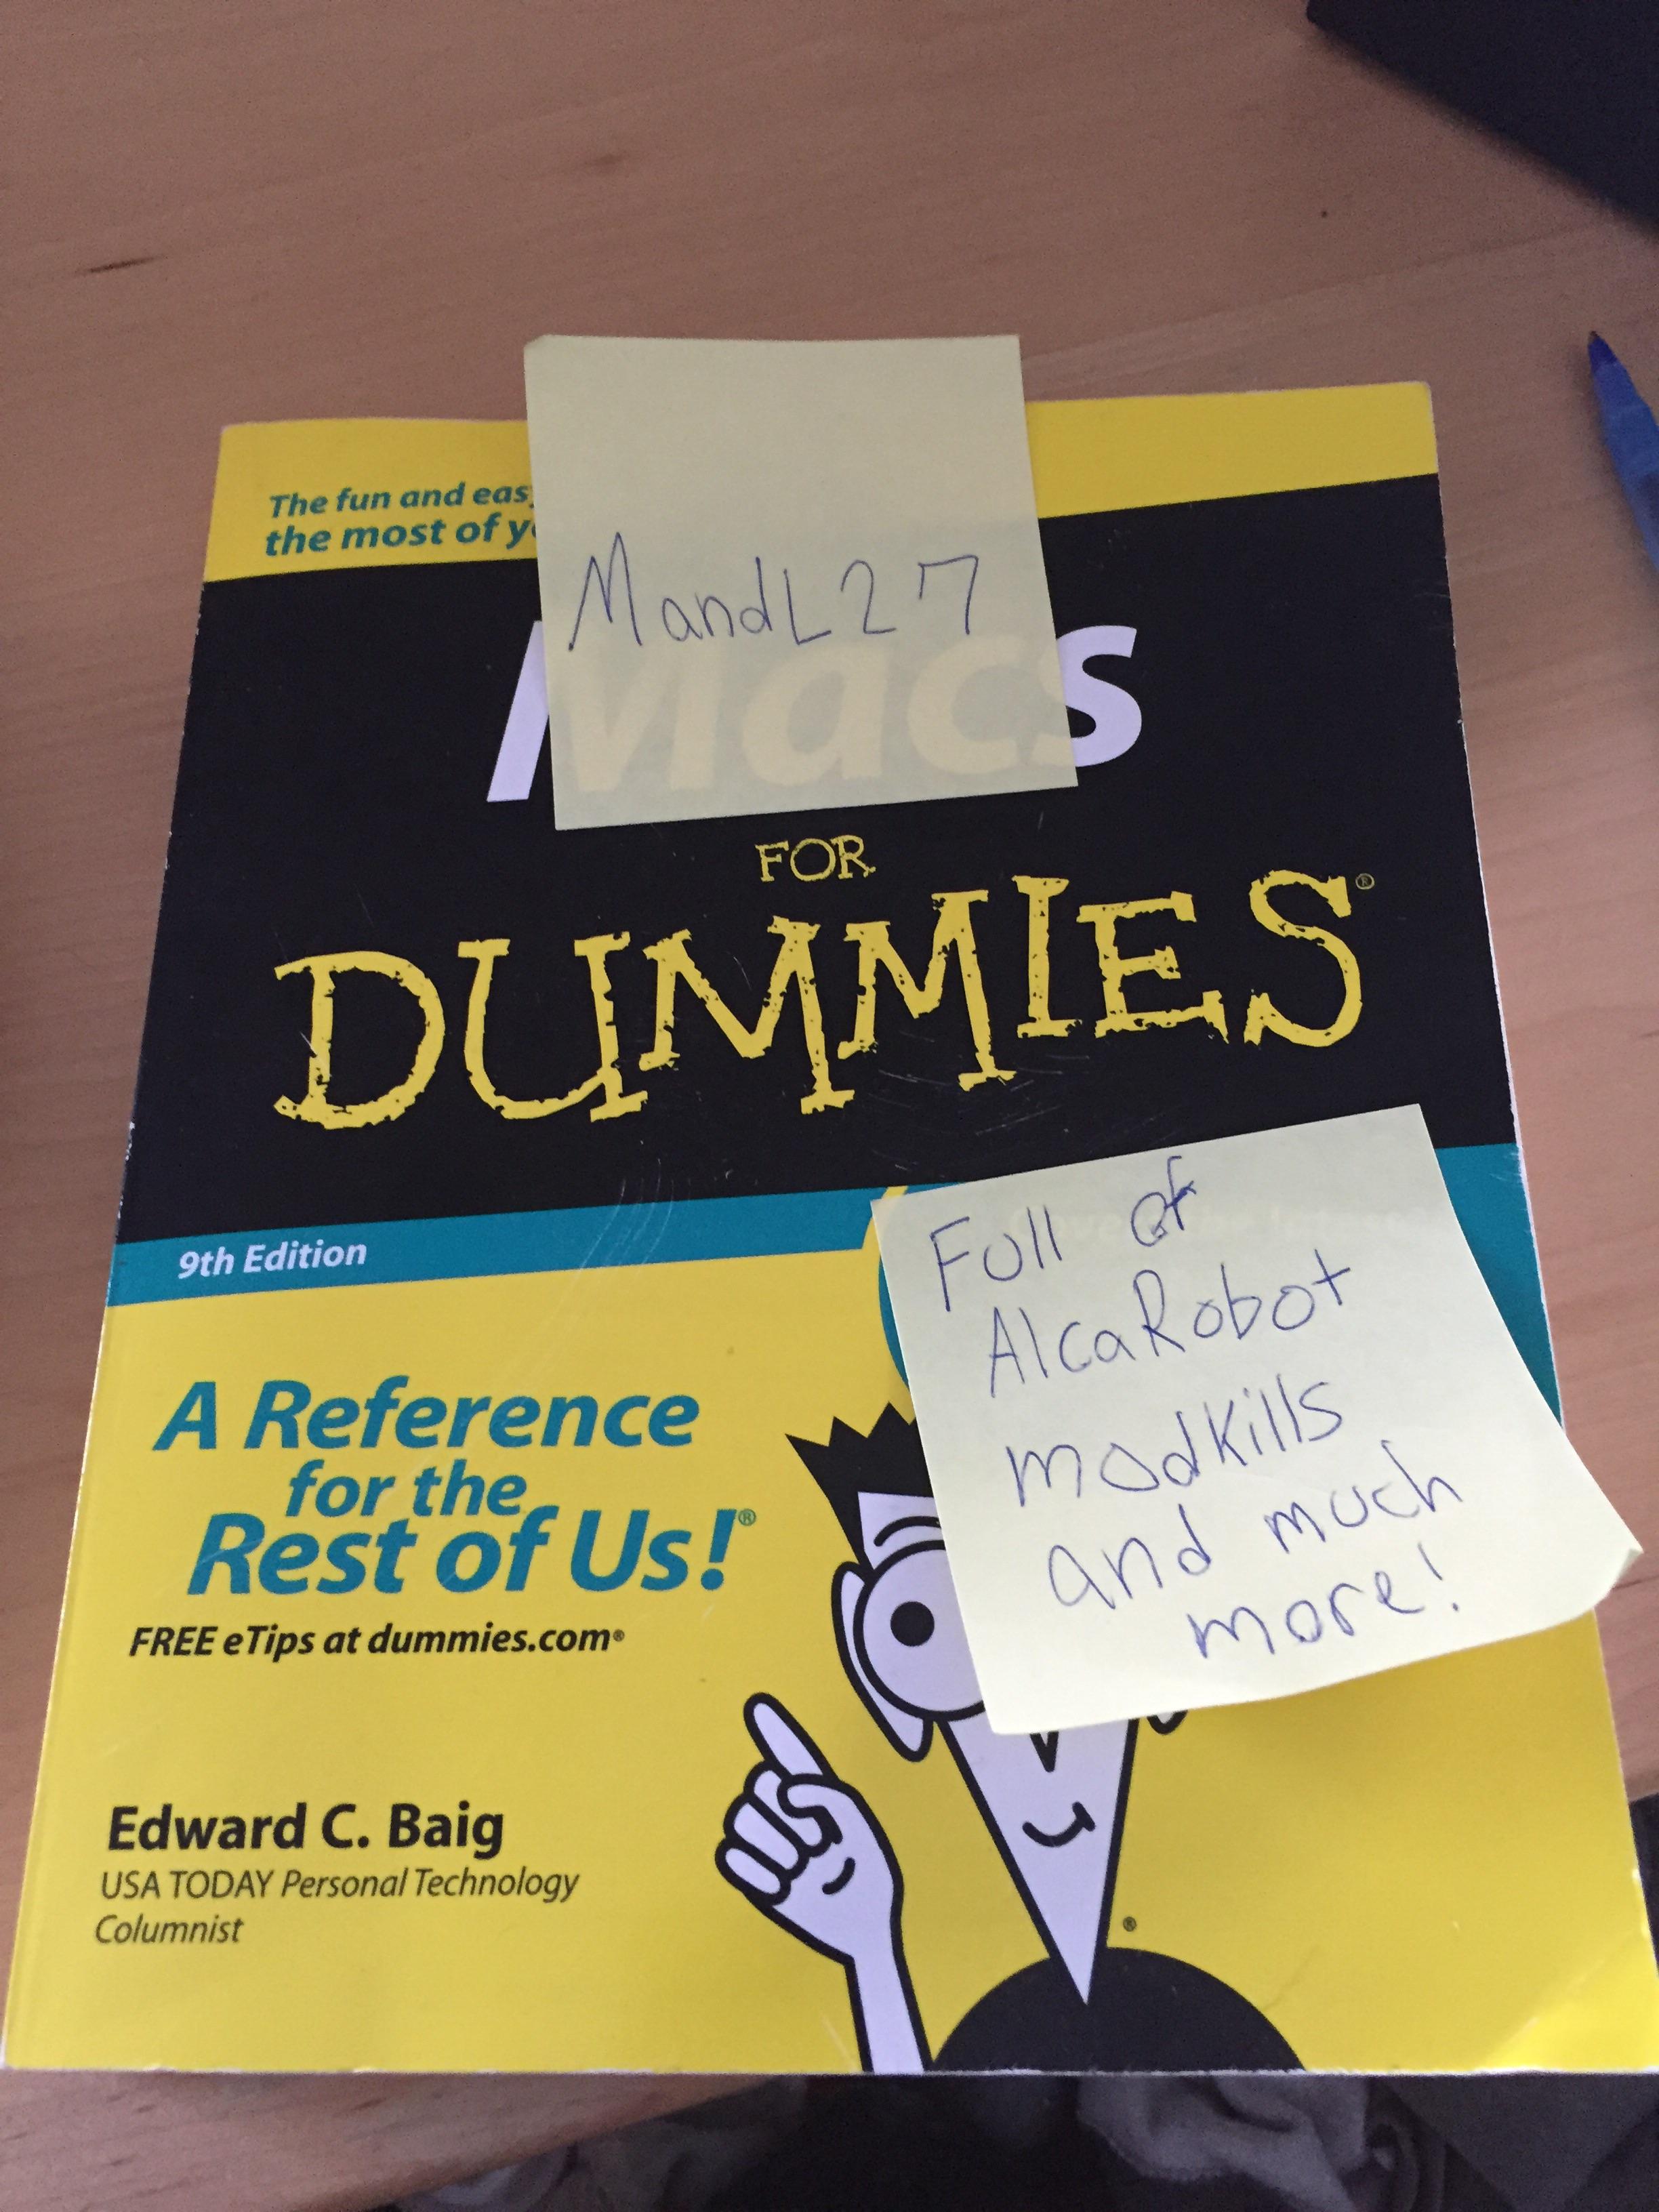 The fun and eas
the most of y
MandL27
Macs
FOR
DUMMIES®
9th Edition
Full of
AlcaRobot
modkills
and much
more!
A Reference
for the
Rest of Us!®
FREE eTips at dummies.com®
Edward C. Baig
USA TODAY Personal Technology
Columnist
®